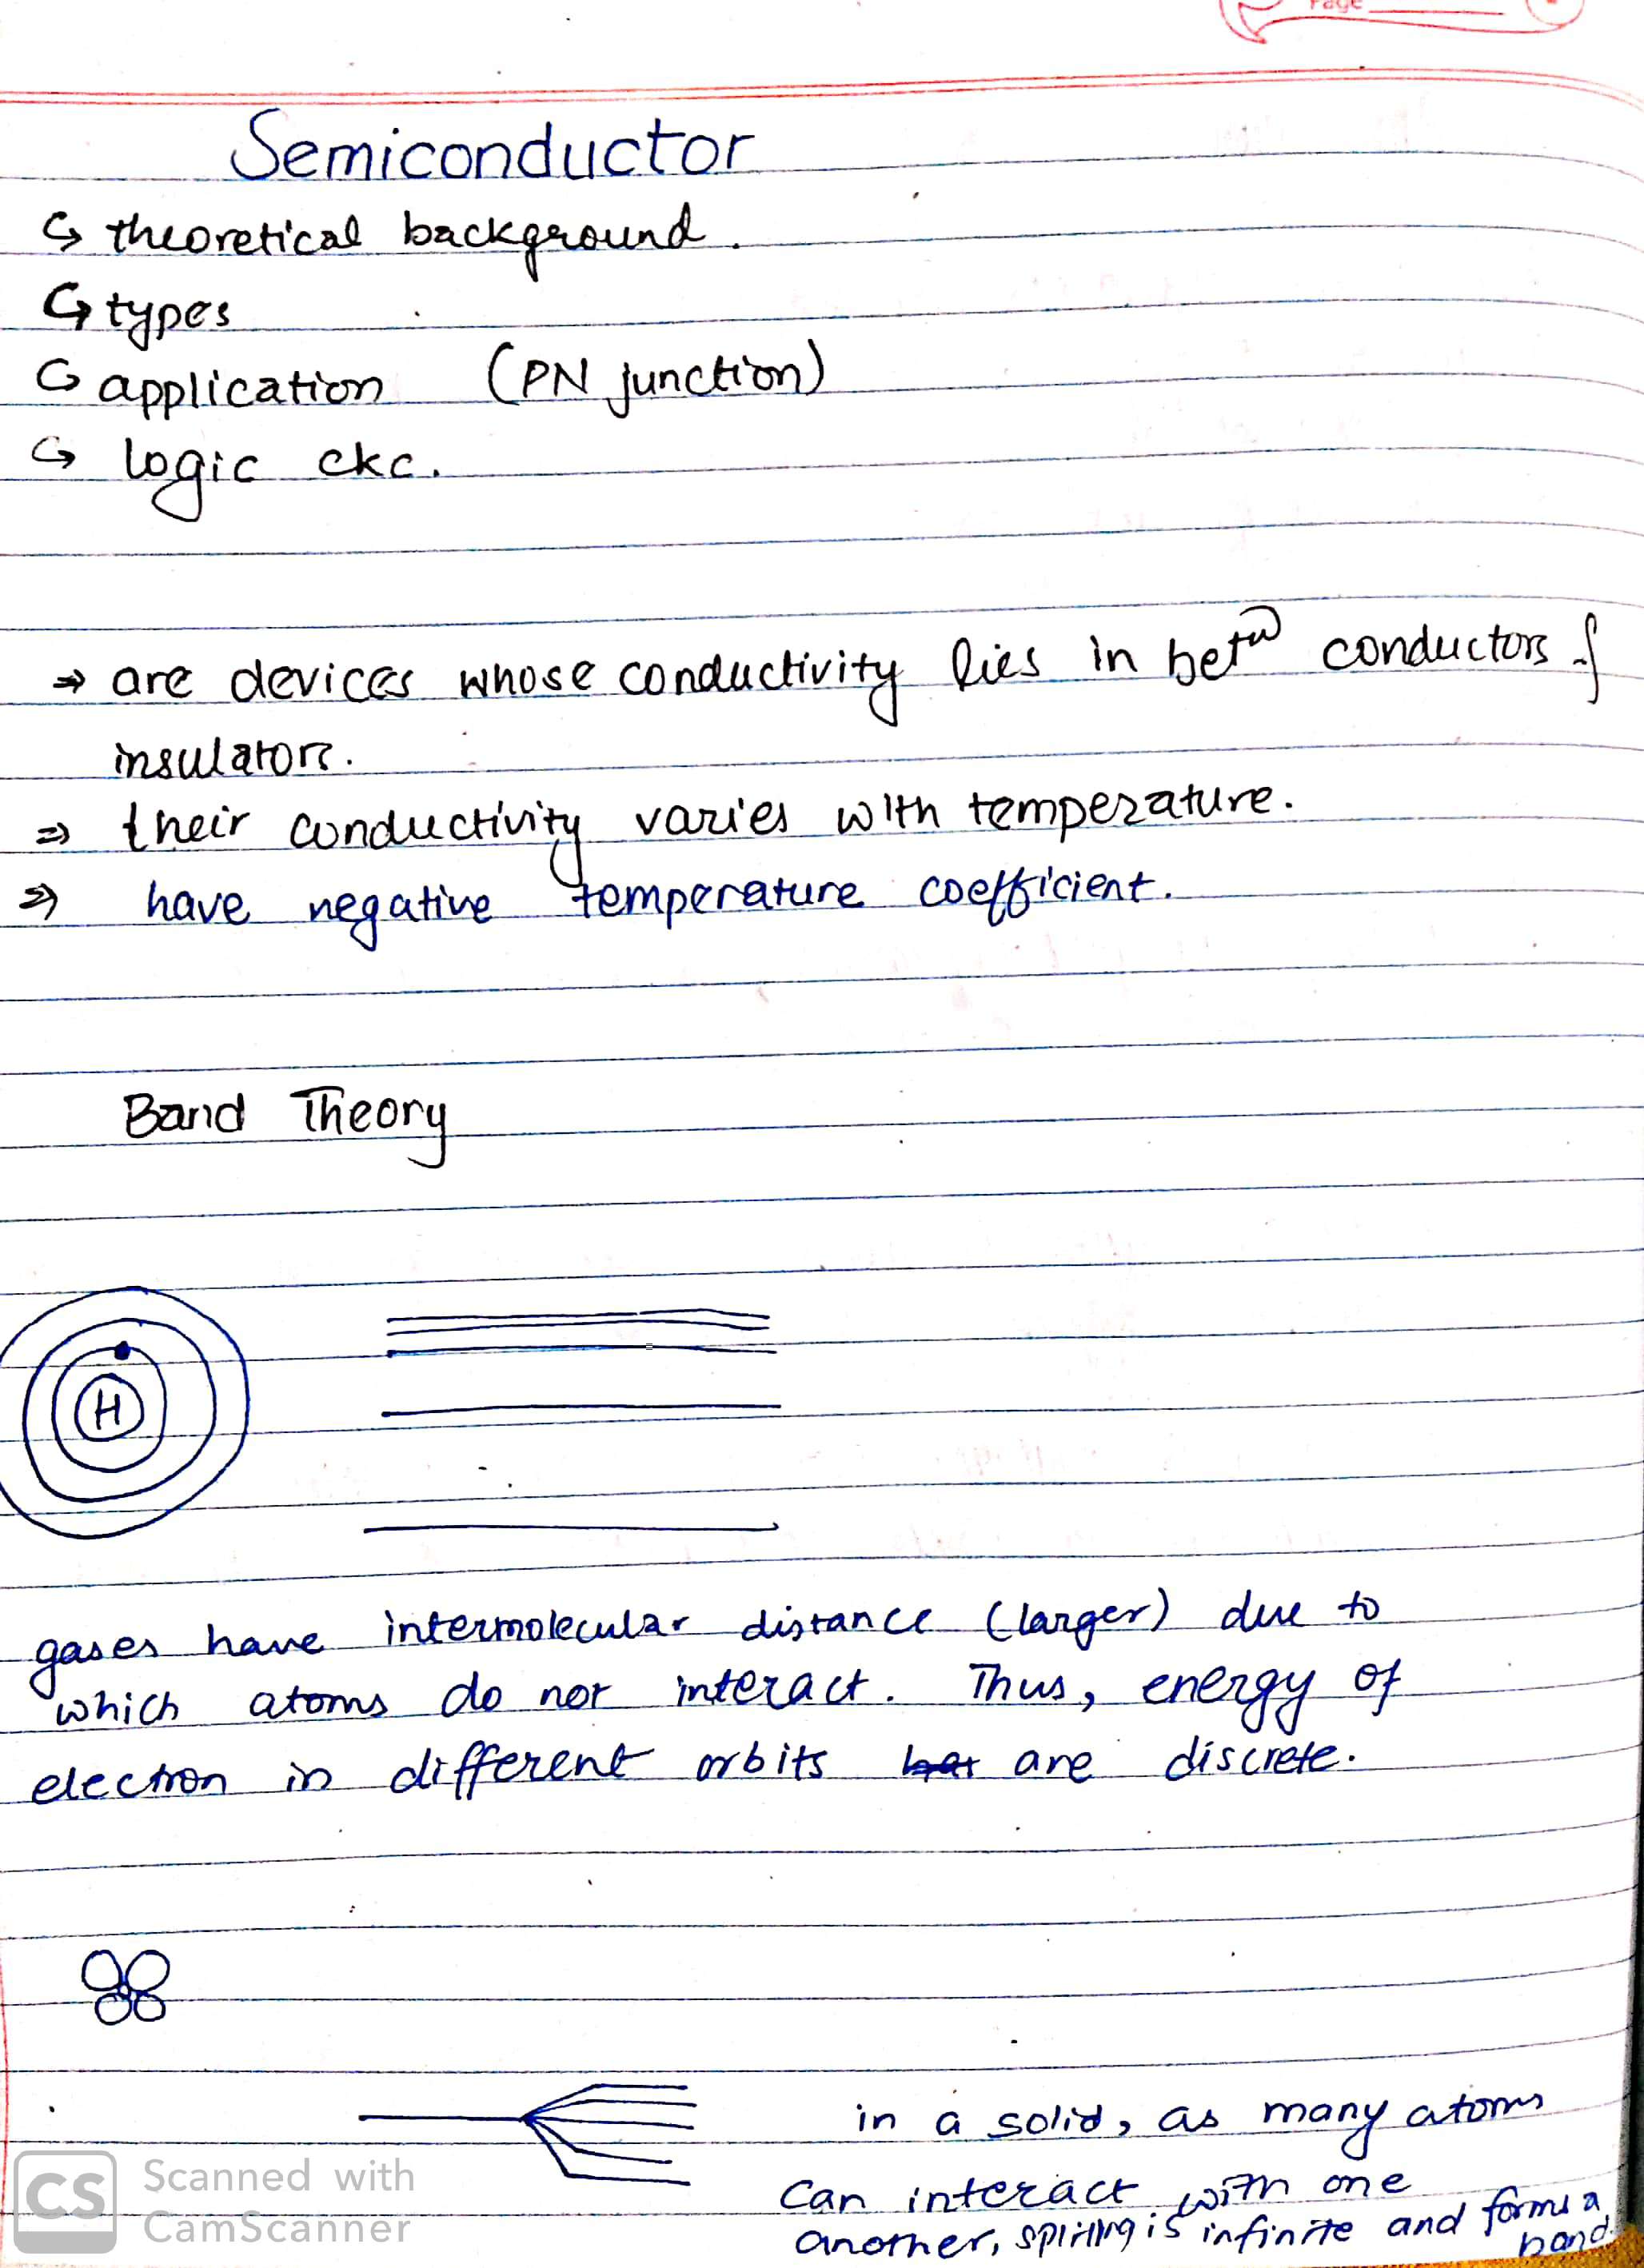 Page
Semiconductor
↳ theoretical background.
↳ types
↳ application (PN junction)
↳ logic ckc.
⇒ are devices whose conductivity lies in betw conductors &
insulators.
⇒ their conductivity varies with temperature.
⇒ have negative temperature coefficient.
Band Theory
H
gases have intermolecular distance (larger) due to
which atoms do not interact. Thus, energy of
electron in different orbits are discrete.
in a solid, as many atoms
can interact with one
another, spliting is infinite and forms a
band.
CS Scanned with
CamScanner